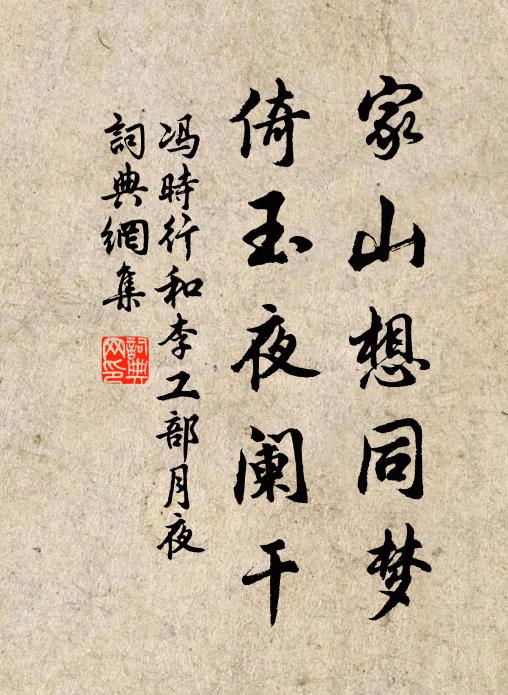 家山想同梦
倚玉夜阑干
冯時行和李工部月夜
詞典網集
詞典
网印